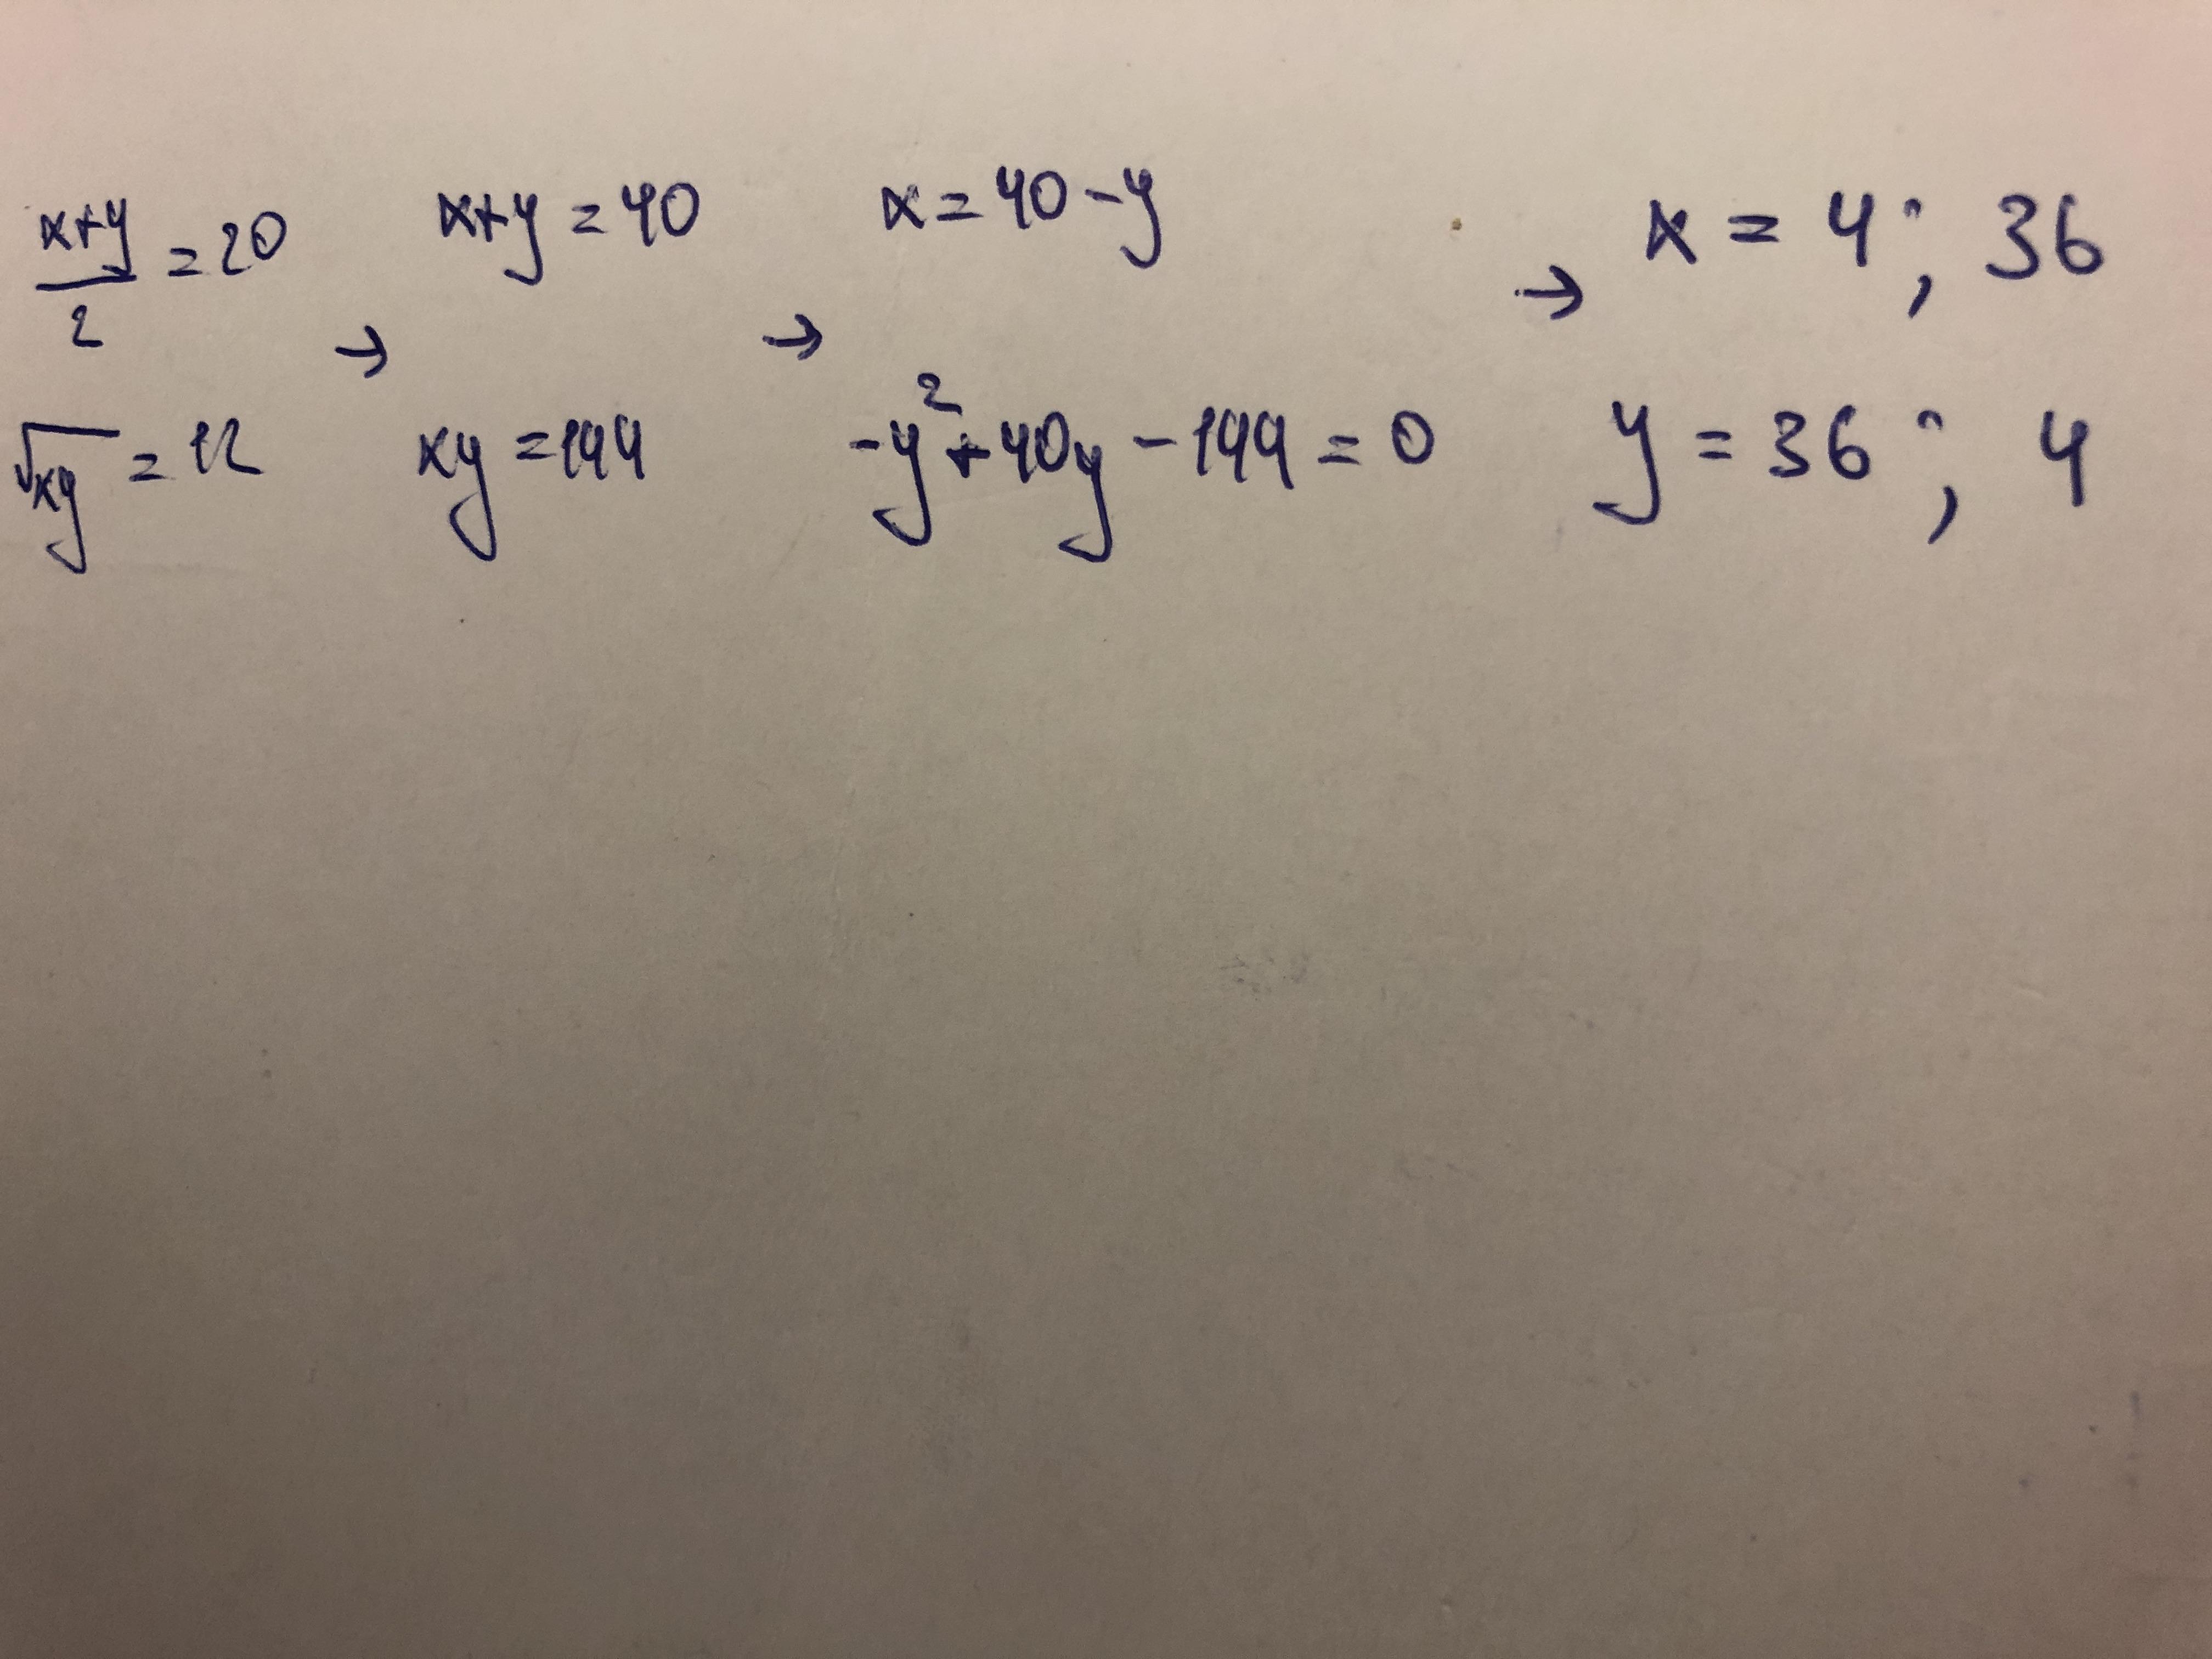 x+y/2 = 20 → x+y = 40 → x = 40 - y → x = 4 ; 36
√xy = 12 → xy = 144 → -y² + 40y - 144 = 0 → y = 36 ; 4